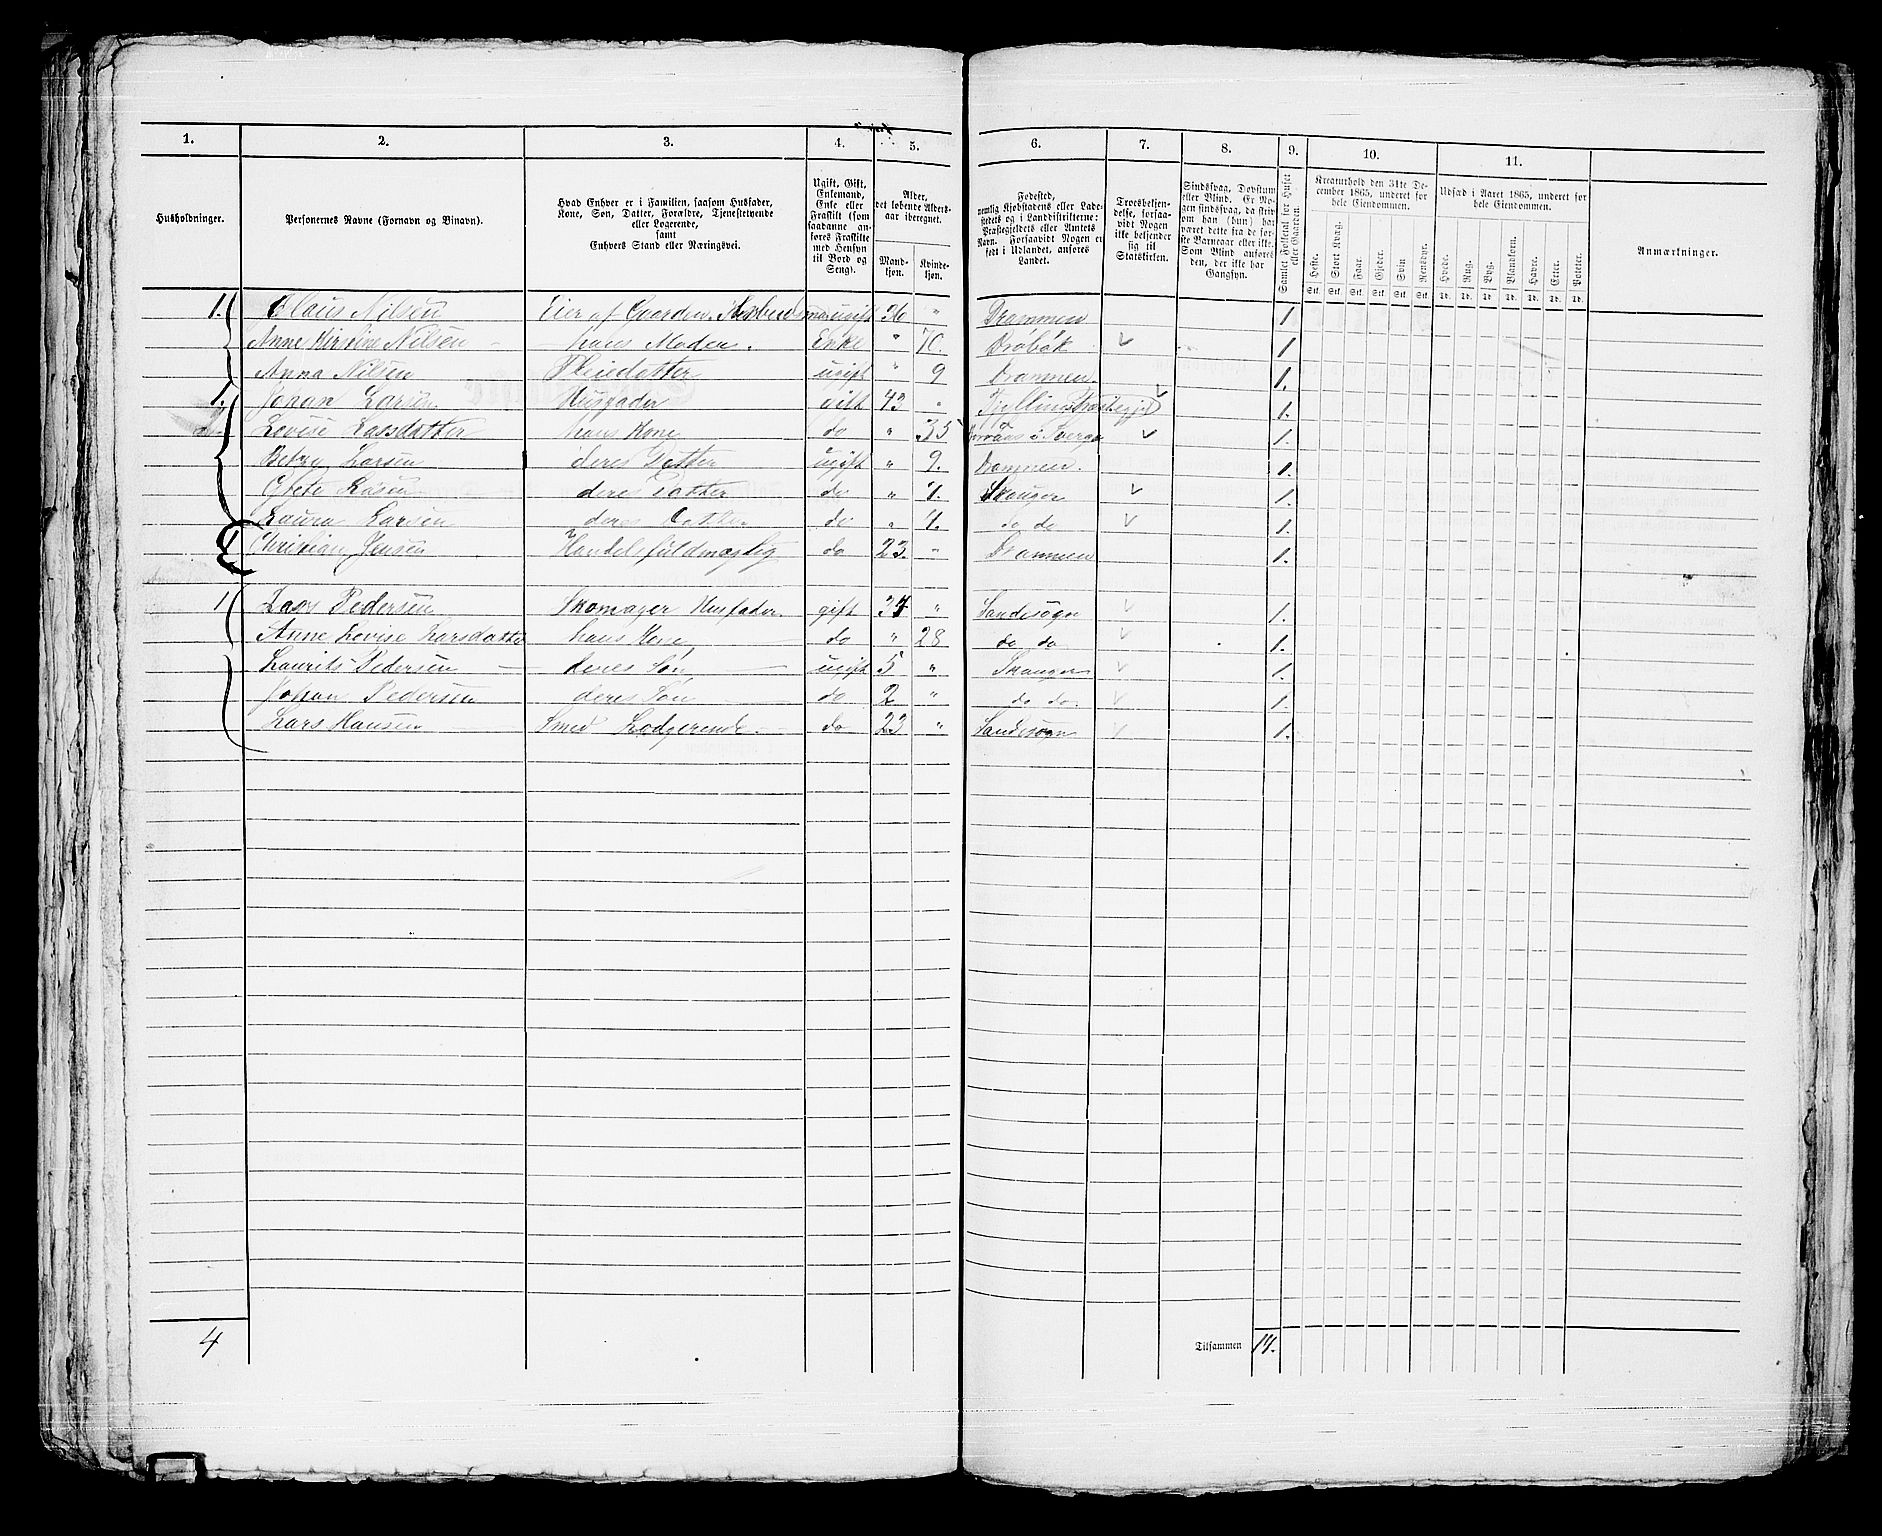 1. 2. 3. 4. 5. 6. 7. 8. 9. 10. 11.
Husholdninger.
Personernes Navne (Fornavn og Binavn).
Hvad Enhver er i Familien, saasom Husfader,
Kone, Søn, Datter, Forældre, Tjenestetyende
eller Logerende,
samt
Enhvers Stand eller Næringsvei.
Ugift, Gift,
Enkemand,
Enke eller
Fraskilt (som
saadanne an-
føres Fraskilte
med Hensyn
til Bord og
Seng).
Alder,
det løbende Alders-
aar iberegnet.
Mand-
kjøn.
Kvinde-
kjøn.
Fødested,
nemlig Kjøbstadens eller Lade-
stedets og i Landdistrikterne:
Præstegjeldets eller Amtets
Navn. Forsaavidt Nogen er
født i Udlandet, anføres
Landet.
Troesbekjen-
delse, forsaa-
vidt Nogen
ikke bekjender
sig til
Statskirken.
Sindssvag, Døvstum
eller Blind. Er No-
gen sindssvag, da skriv
om han (hun) har
været dette fra de før-
ste Barneaar eller ikke.
Som Blind anføres
den, der ikke har
Gangsyn.
Samlet Folketal for Huset
eller Gaarden.
Kreaturhold den 31te De-
cember 1865, underet for
hele Eiendommen.
Heste. Stort Kvæg. Faar. Gjeder. Svin Rensdyr.
Stk. Stk. Stk. Stk. Stk. Stk.
Udsæd i Aaret 1865, underet for
hele Eiendommen.
Hvede. Rug. Byg. Blandkorn. Havre. Erter. Poteter.
Td. Td. Td. Td. Td. Td. Td.
Anmærkninger.
1. Olaus Nilsen Eier af Gaarden, ugift 26 " Drammen 1
Anne Kirstine Nilsen - hans Moder. Enke " 70. Drøbak 1
Anna Nilsen Pleiedatter ugift " 9 Drammen. 1.
1. Johan Larsen Husfader gift 43 " 1.
Lovise Larsdatter hans Kone do " 35 1.
Betzy Larsen deres Datter ugift " 9. Drammen. 1.
Larsen deres Datter do " Skouger 1.
Laura Larsen deres Datter do " do do 1.
1 Christian Jensen Handelsfuldmægtig do 23. " Drammen 1.
1 Lars Pedersen Skomager Husfader. gift 34 " Sandesogn 1.
Anne Lovise Larsdatter hans Kone do " 28 do do 1.
Laurits Pedersen - deres Søn ugift 5 " Skouger 1.
Johan Pedersen deres Søn do 2 " do do. 1.
Lars Hansen Smed Lodgerende - do 23 " Sandesogn 1.
4 Tilsammen 14.